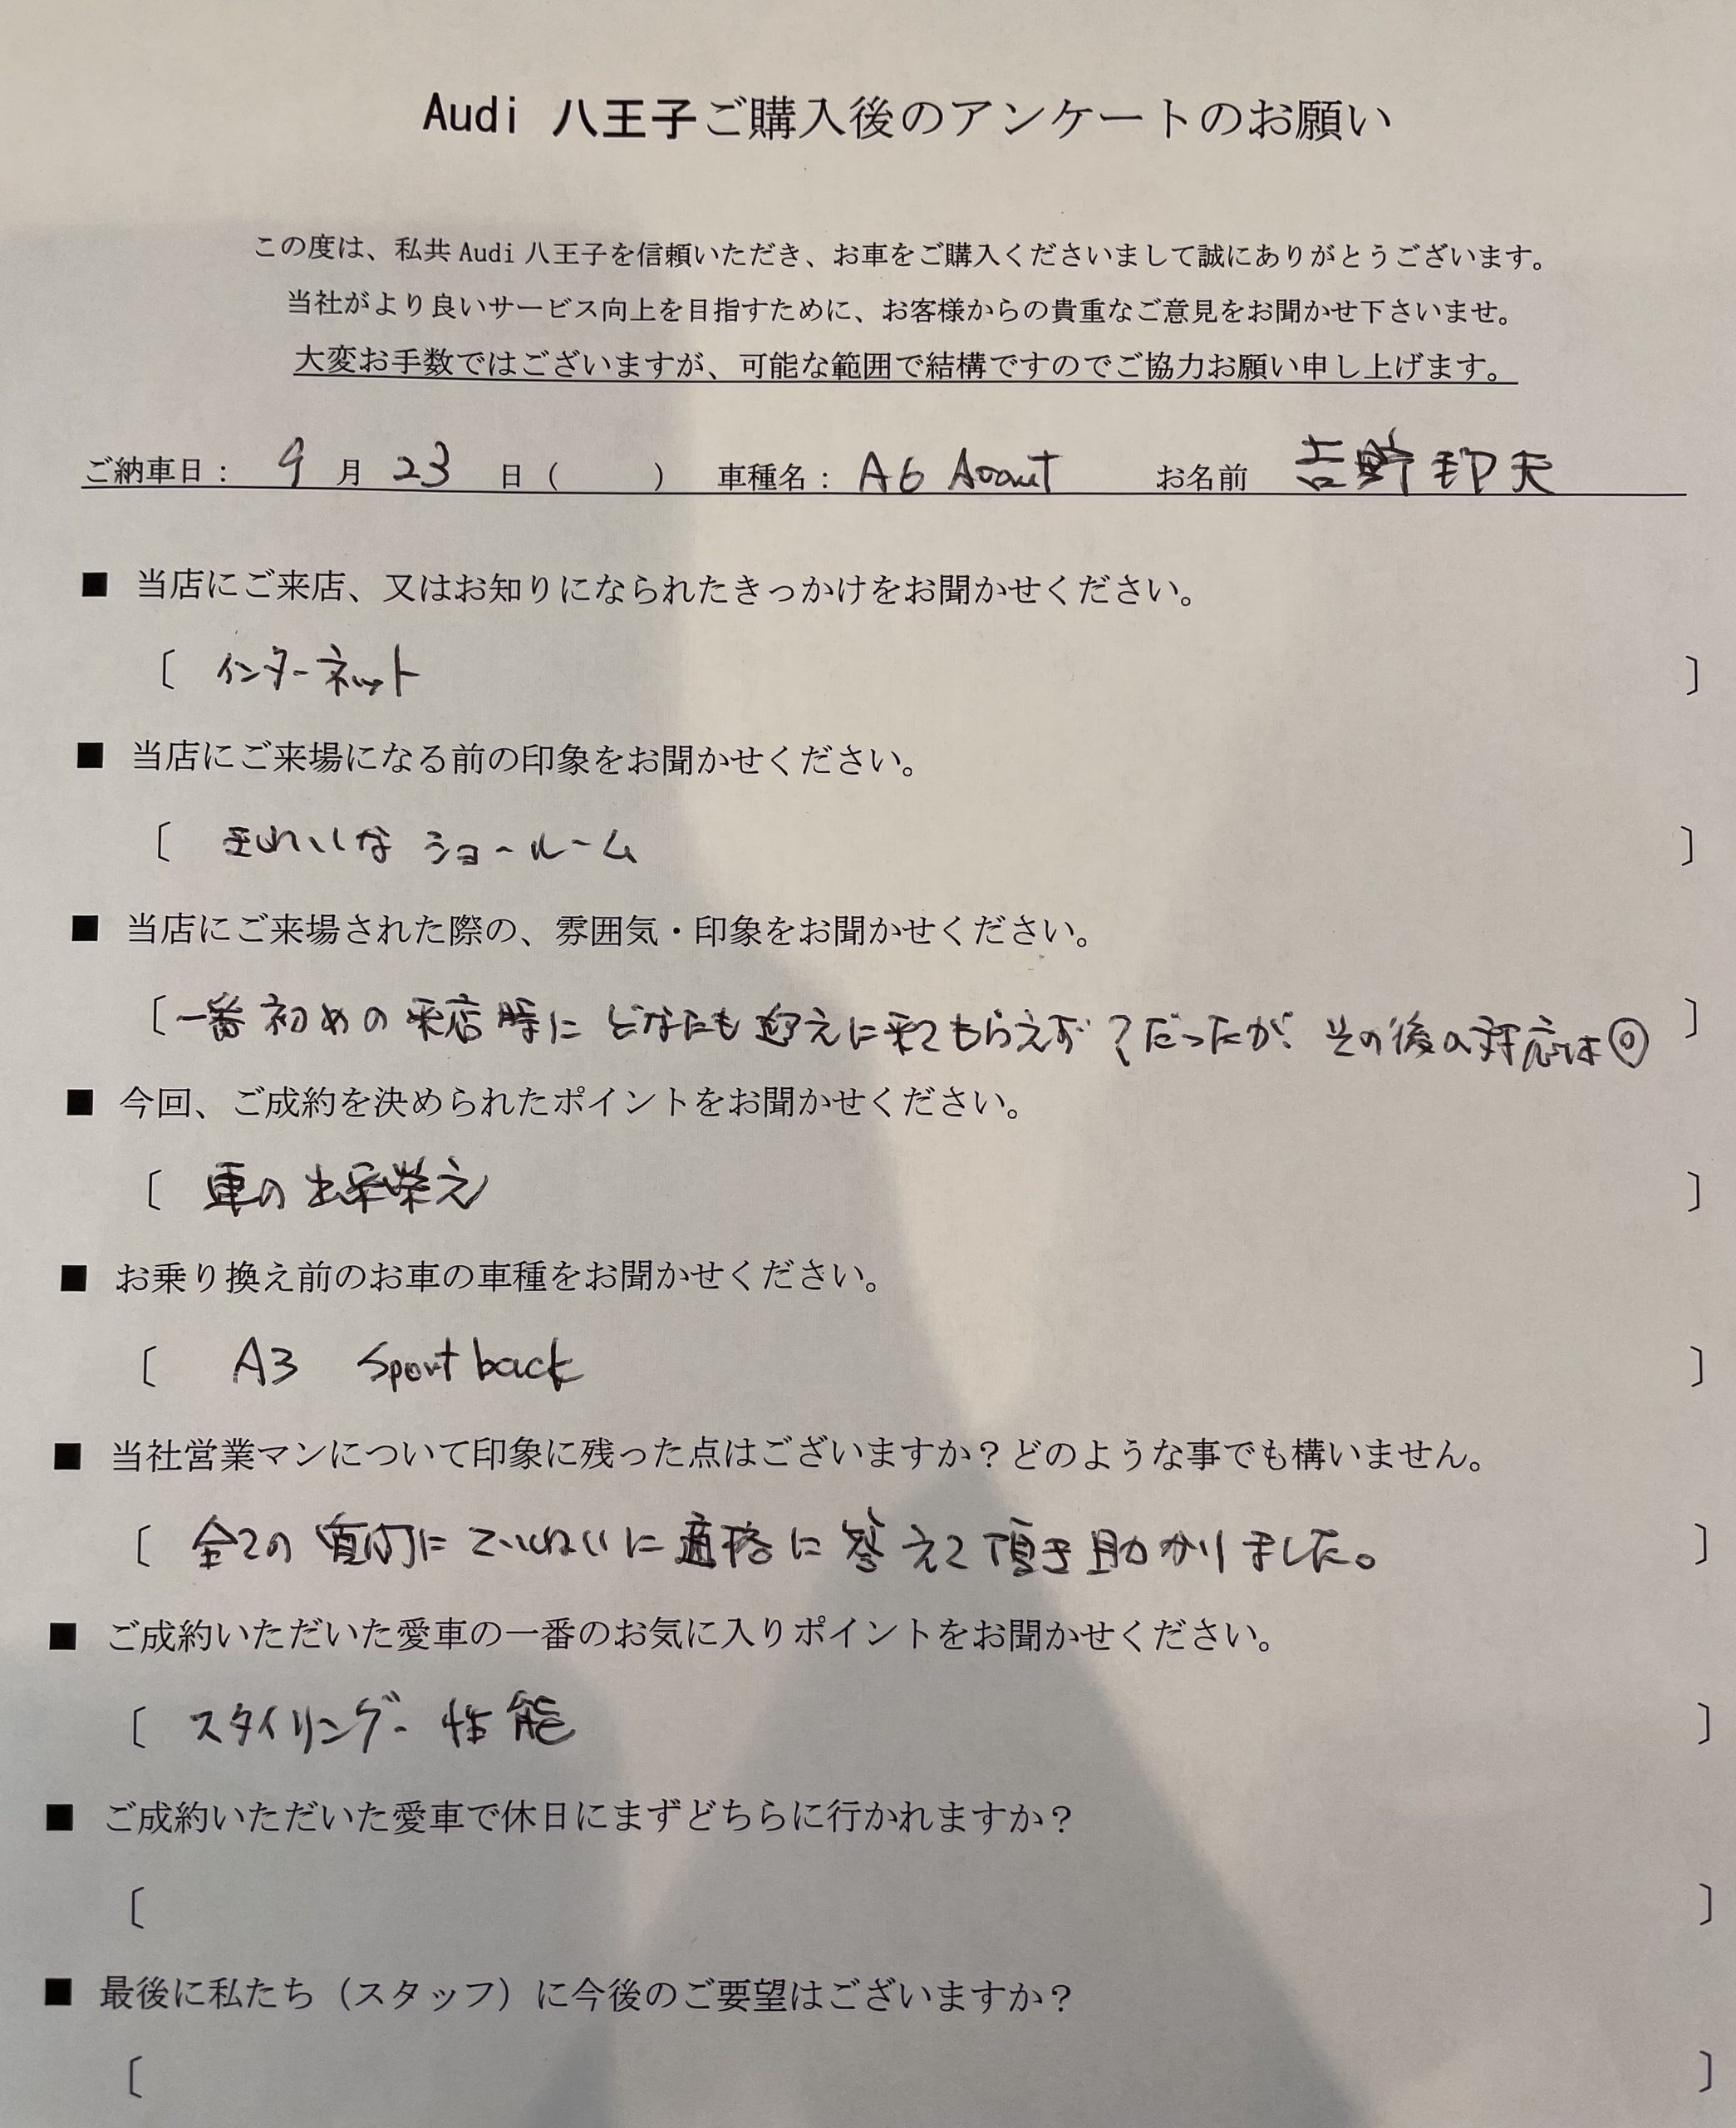 Audi 八王子ご購入後のアンケートのお願い
この度は、私共 Audi 八王子を信頼いただき、お車をご購入くださいまして誠にありがとうございます。
当社がより良いサービス向上を目指すために、お客様からの貴重なご意見をお聞かせ下さいませ。
大変お手数ではございますが、可能な範囲で結構ですのでご協力お願い申し上げます。
ご納車日： 9 月 23 日（　　）　車種名： A6 Avant　お名前 吉野 夫
■ 当店にご来店、又はお知りになられたきっかけをお聞かせください。
〔 インターネット 〕
■ 当店にご来場になる前の印象をお聞かせください。
〔 きれいな ショールーム 〕
■ 当店にご来場された際の、雰囲気・印象をお聞かせください。
〔 一番初めの来店時にどなたも迎えに来てもらえず？だったが、その後の対応は◎ 〕
■ 今回、ご成約を決められたポイントをお聞かせください。
〔 車の出来栄え 〕
■ お乗り換え前のお車の車種をお聞かせください。
〔 A3 Sportback 〕
■ 当社営業マンについて印象に残った点はございますか？どのような事でも構いません。
〔 全ての質問にていねいに適格に答えて頂き助かりました。 〕
■ ご成約いただいた愛車の一番のお気に入りポイントをお聞かせください。
〔 スタイリング- 性能 〕
■ ご成約いただいた愛車で休日にまずどちらに行かれますか？
〔 〕
■ 最後に私たち（スタッフ）に今後のご要望はございますか？
〔 〕